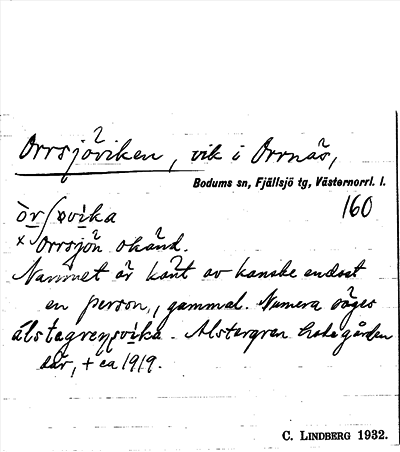 Orrsjöviken, vik i Orrnäs,
Bodums sn, Fjällsjö tg, Västernorrl. l.
160
òrʃøvika
× Orrsjön okänd.
Namnet är känt av kanske endast
en person, gammal. Numera säges
älstegrensvika. Alstergren hade gården
där, + ca 1919.
C. LINDBERG 1932.